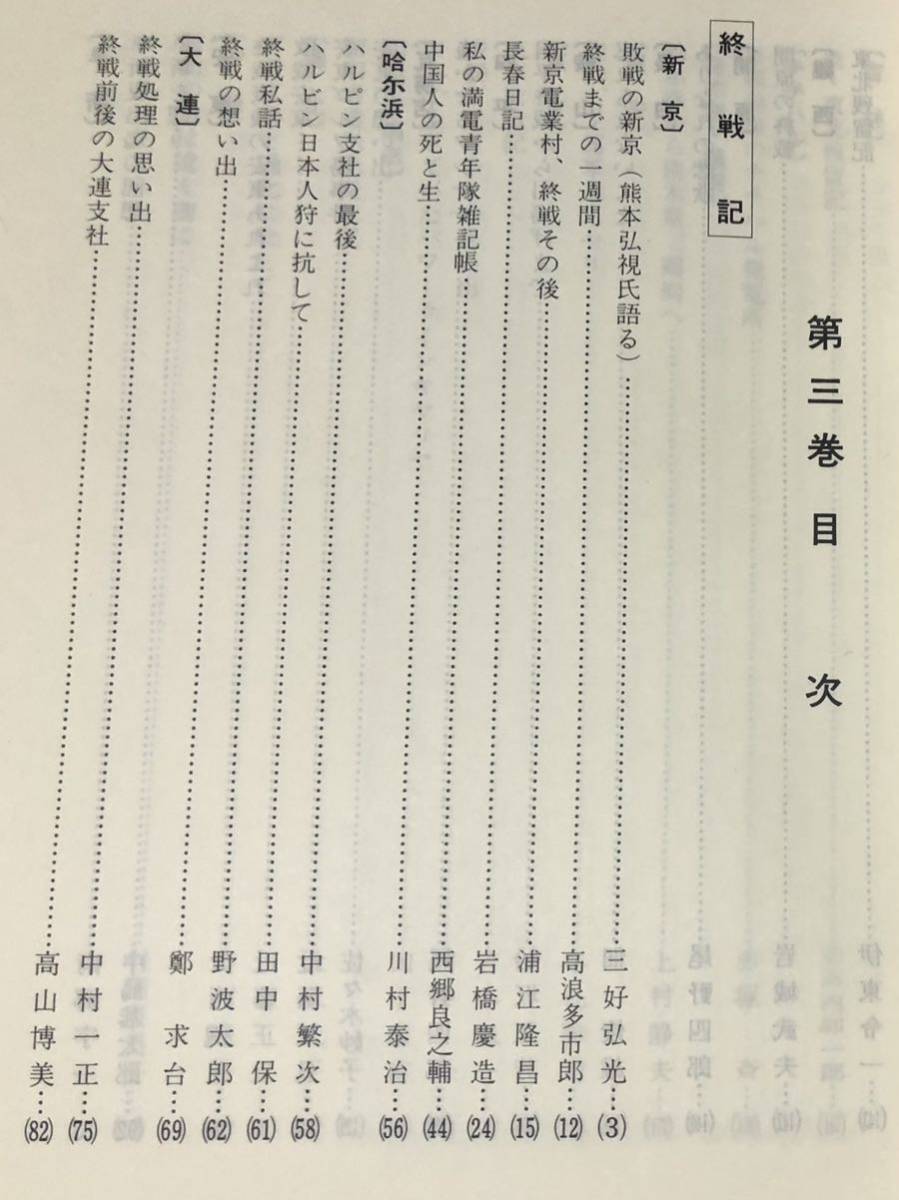 第三巻目次
終戦記
〔新京〕
敗戦の新京（熊本弘視氏語る）……三好弘光…(3)
終戦までの一週間……高浪多市郎…(12)
新京電業村、終戦その後……浦江隆昌…(15)
長春日記……岩橋慶造…(24)
私の満電青年隊雑記帳……西郷良之輔…(44)
中国人の死と生……川村泰治…(56)
〔哈尔浜〕
ハルピン支社の最後……中村繁次…(58)
ハルビン日本人狩に抗して……田中正保…(61)
終戦私話……野波太郎…(62)
終戦の想い出……鄭求台…(69)
〔大連〕
終戦処理の思い出……中村一正…(75)
終戦前後の大連支社……高山博美…(82)